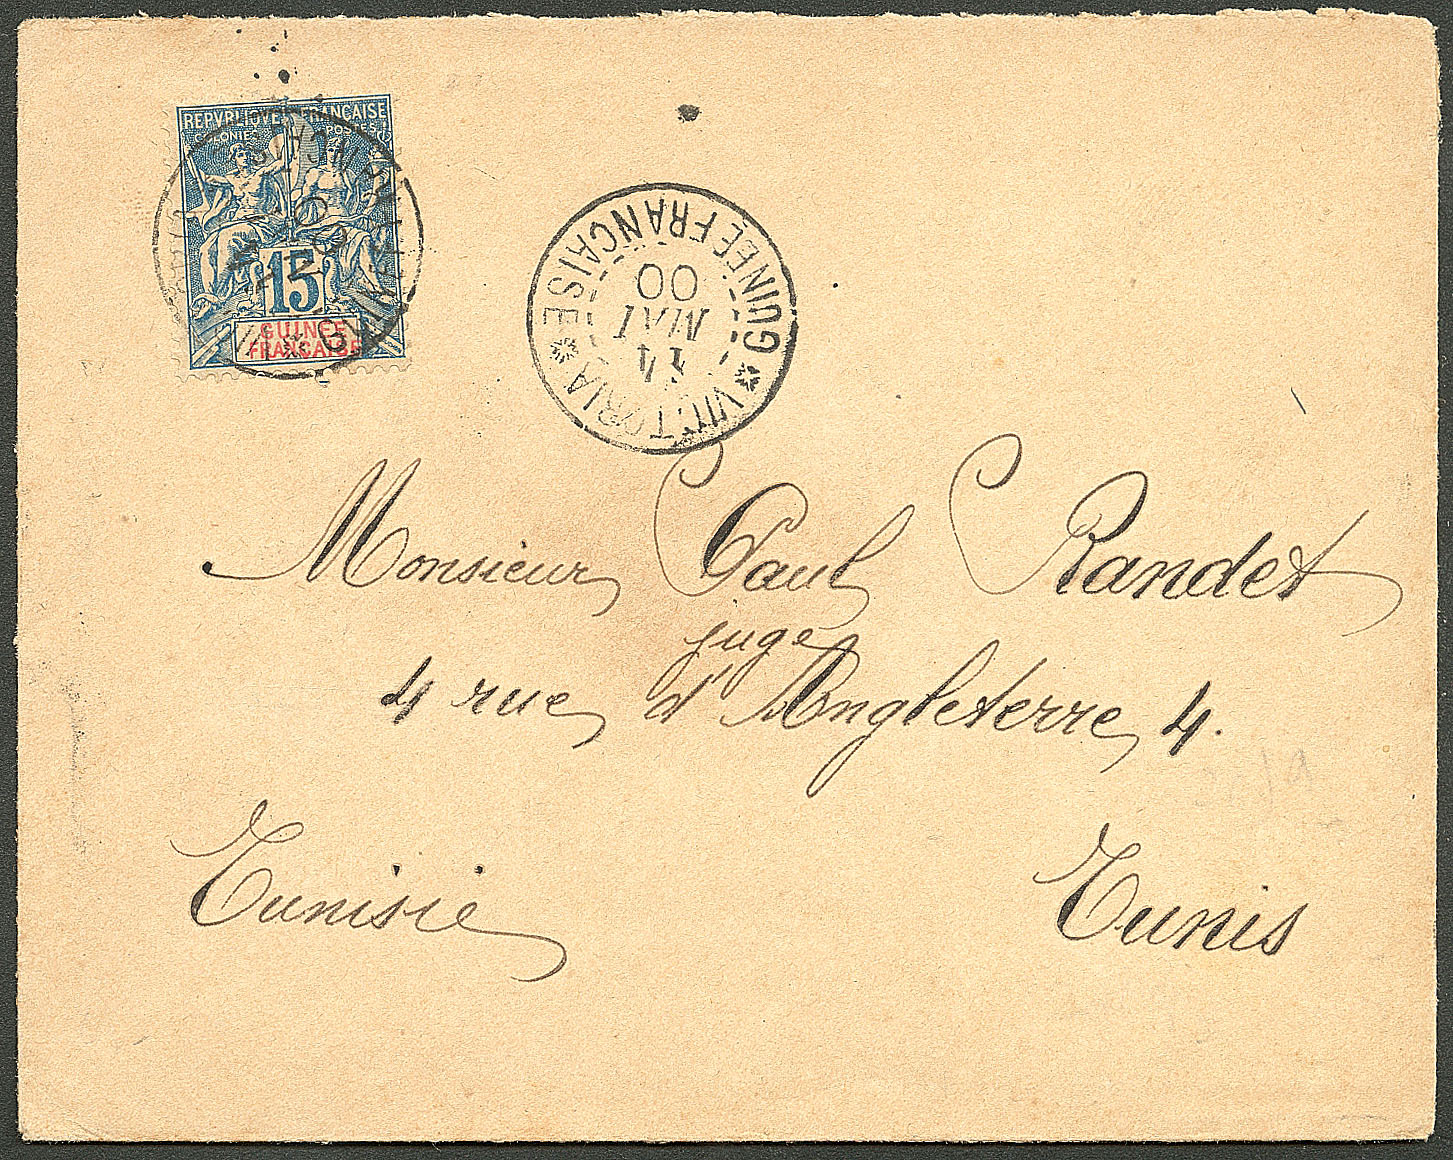 REPVBLIQVE FRANÇAISE
COLONIES POSTES
15
GUINEE
FRANÇAISE
GUINÉE FRANÇAISE
VICTORIA
14
MAI
00
Monsieur Paul Randet
juge
4 rue d'Angleterre 4.
Tunisie Tunis